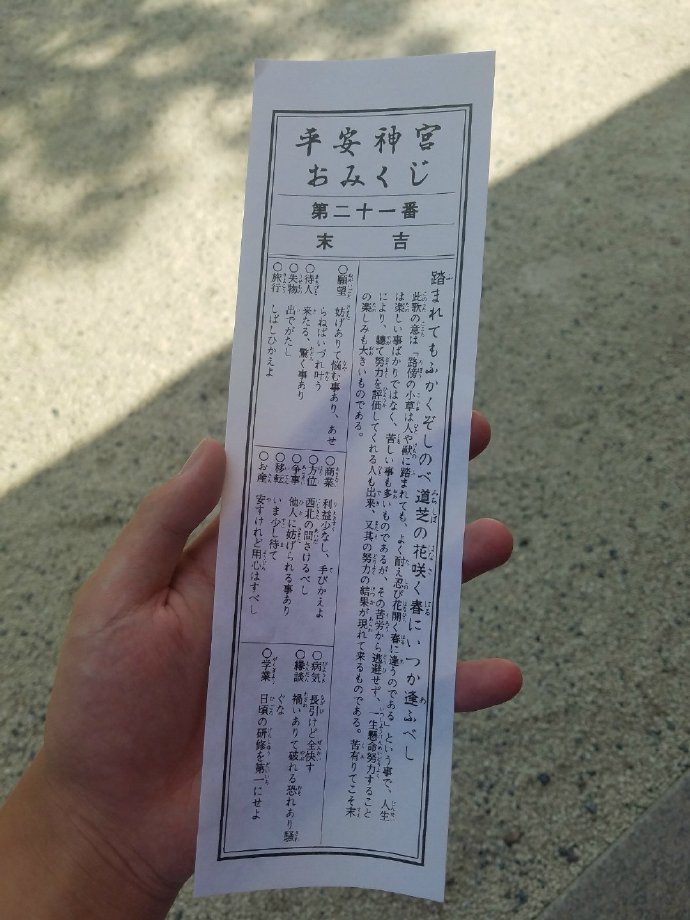 平安神宮
おみくじ
第二十一番
末吉
踏まれてもふかくぞしのべ道芝の花咲く春にいつか逢ふべし
此歌の意は「路傍の小草は人や獣に踏まれても、よく耐え忍び花開く春に逢うのである」という事で、人生
は楽しい事ばかりではなく、苦しい事も多いものであるが、その苦労から逃避せず、一生懸命努力すること
により、軈て努力を評価してくれる人も出来、又其の努力の結果が現れて来るものである。苦有りてこそ末
の楽しみも大きいものである。
○願望 妨げありて悩む事あり、あせ
らねばいづれ叶う
○待人 来たる、驚く事あり
○失物 出でがたし
○旅行 しばしひかえよ
○商業 利益少なし、手びかえよ
○方位 西北の間さけるべし
○争事 他人に妨げられる事あり
○移転 いま少し待て
○お産 安すけれど用心はすべし
○病気 長引けど全快す
○縁談 禍いありて破れる恐れあり騒
ぐな
○学業 日頃の研修を第一にせよ